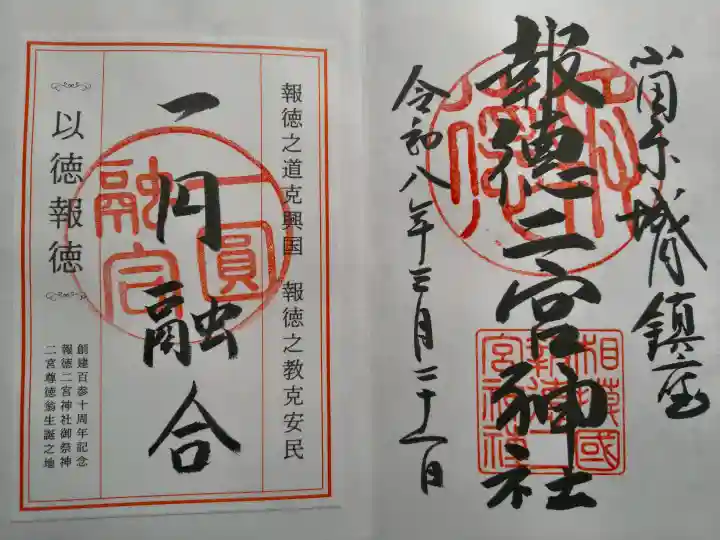 小田原城鎮座
報徳二宮神社
令和八年三月二十一日
相模國
報徳二
宮神社
報徳之道克興国 報徳之教克安民
一円融合
一圓
融合
以徳報徳
創建百参十周年記念
報徳二宮神社御祭神
二宮尊徳翁生誕之地